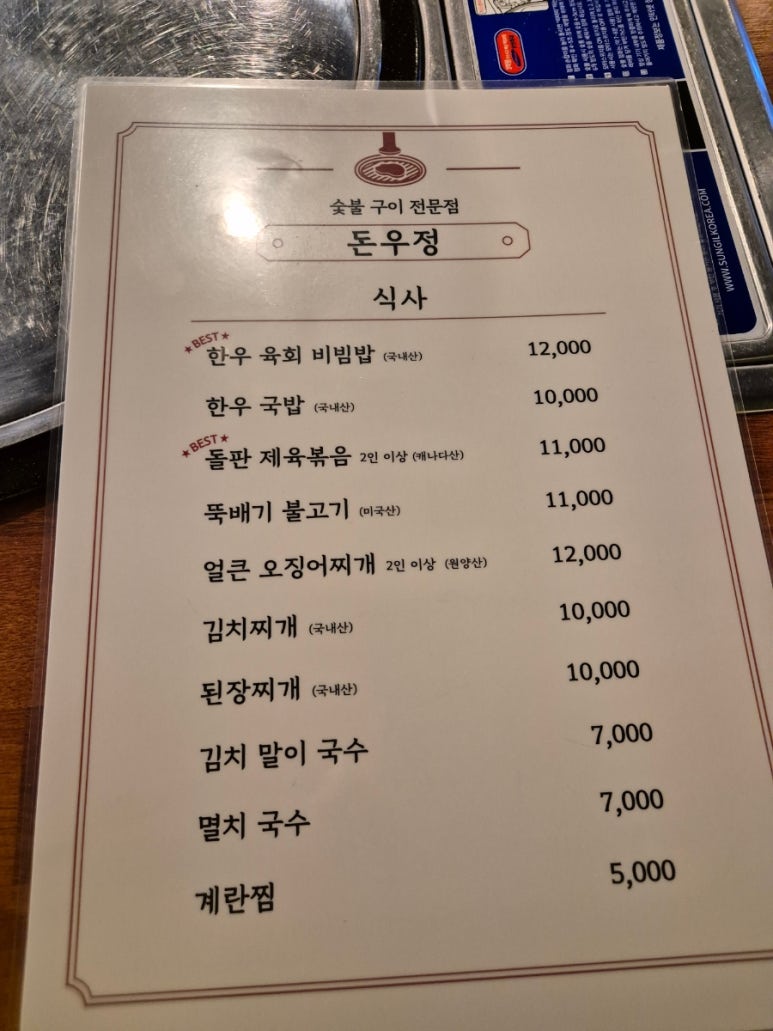 숯불 구이 전문점
돈우정
식사
★BEST★
한우 육회 비빔밥 (국내산) 12,000
한우 국밥 (국내산) 10,000
★BEST★
돌판 제육볶음 2인 이상 (캐나다산) 11,000
뚝배기 불고기 (미국산) 11,000
얼큰 오징어찌개 2인 이상 (원양산) 12,000
김치찌개 (국내산) 10,000
된장찌개 (국내산) 10,000
김치 말이 국수 7,000
멸치 국수 7,000
계란찜 5,000
WWW.SUNGILKOREA.COM